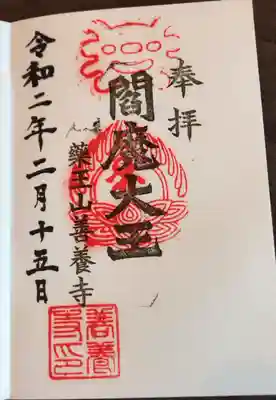 奉拝
閻魔大王
薬王山善養寺
令和二年二月十五日
善養
寺印